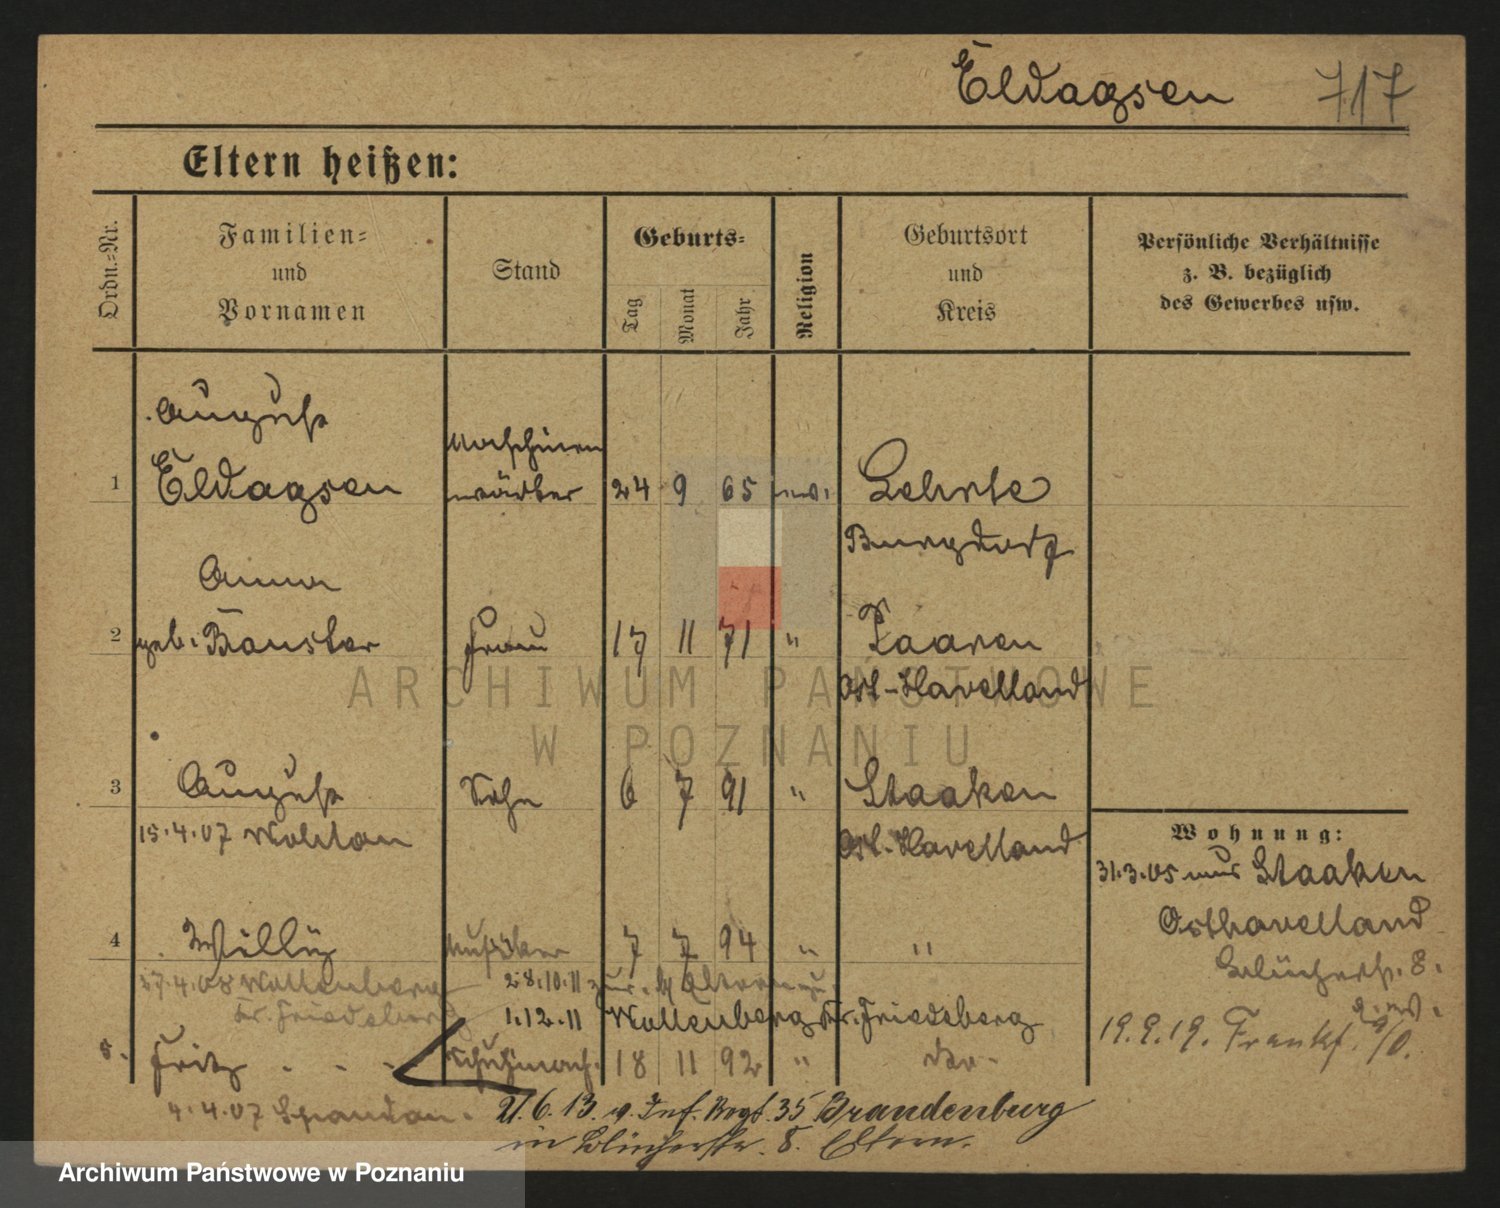 Eldagsen 717
Eltern heißen:
Ordn.-Nr.
Familien-
und
Vornamen
Stand
Geburts-
Tag
Monat
Jahr
Religion
Geburtsort
und
Kreis
Persönliche Verhältnisse
z. B. bezüglich
des Gewerbes usw.
August
Maschinen
1 Eldagsen wärter 24 9 65 Lehrte
Burgdorf
Anna
2 geb. Frau 17 11 71 " Paaren
Ost-Havelland
3 August Sohn 6 7 91 " Staaken
15.4.07 Ost-Havelland
Wohnung:
31.3.05 aus Staaken
Osthavelland
4 Willy 7 7 94 " "
Blücherstr. 8.
27.4.08 Woldenberg 28.10.11 zur. Eltern
Kr. Friedeberg 1.12.11 Woldenberg Kr. Friedeberg
19.9.19. Frankf. a/O.
5. Fritz - - - Schuhmach. 18 11 92 " do -
4.4.07 Spandau.
21.6.13. v. Inf. Regt. 35 Brandenburg
in Blücherstr. 8. Eltern.
ARCHIWUM PAŃSTWOWE
W POZNANIU
Archiwum Państwowe w Poznaniu